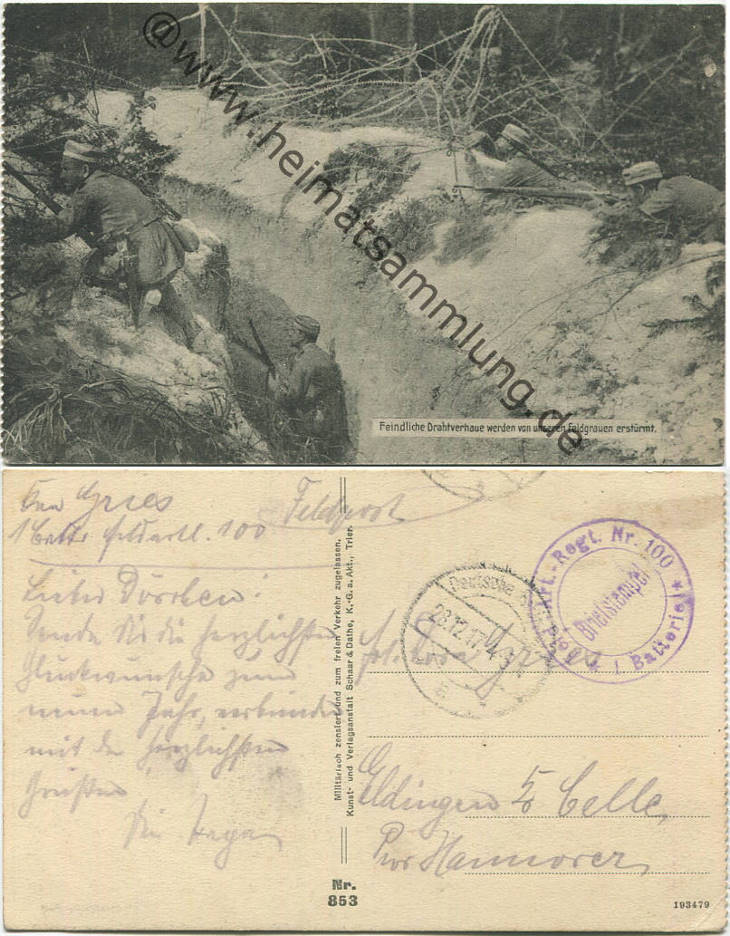 @www.heimatsammlung.de
Feindliche Drahtverhaue werden von unseren Feldgrauen erstürmt.
Gries
Feldpost
1 Battr. Feldartl. 100
Sende Dir die herzlichsten
Glückwünsche zum
neuen Jahr, verbunden
mit den herzlichsten
Grüßen
Militärisch zensiert und zum freien Verkehr zugelassen.
Kunst- und Verlagsanstalt Schaar & Dathe, K.-G. a. Akt., Trier.
Nr.
853
Deutsche
28.12.17
Regt. Nr. 100
Briefstempel
1 Batterie
Eldingen b/ Celle,
Prov Hannover,
193479